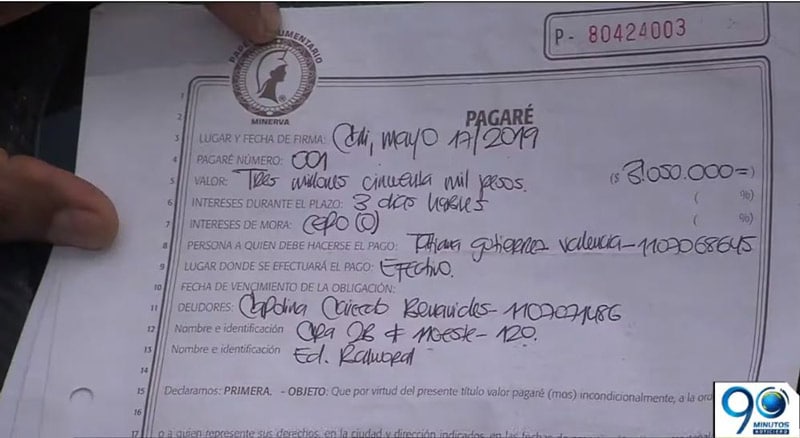 P- 80424003
PAPEL DOCUMENTARIO
MINERVA
1
PAGARÉ
2
3 LUGAR Y FECHA DE FIRMA: Cali, mayo 17/2019
4 PAGARÉ NÚMERO: 001
5 VALOR: Tres millones cincuenta mil pesos. ($ 3.050.000=)
6 INTERESES DURANTE EL PLAZO: 3 días hábiles ( %)
7 INTERESES DE MORA: Cero (0) ( %)
8 PERSONA A QUIEN DEBE HACERSE EL PAGO: Tatiana Gutierrez Valencia-1107068645
9 LUGAR DONDE SE EFECTUARÁ EL PAGO: Efectivo.
10 FECHA DE VENCIMIENTO DE LA OBLIGACIÓN:
11 DEUDORES: Carolina Caicedo Benavides-1107071486
12 Nombre e identificación Cra 2B # 11oeste-120.
13 Nombre e identificación Ed. Balmoral
15 Declaramos: PRIMERA. - OBJETO: Que por virtud del presente título valor pagaré (mos) incondicionalmente, a la ord
16
17 o a quien represente sus derechos, en la ciudad y dirección indicados, en las fechas de
90
MINUTOS
NOTICIERO